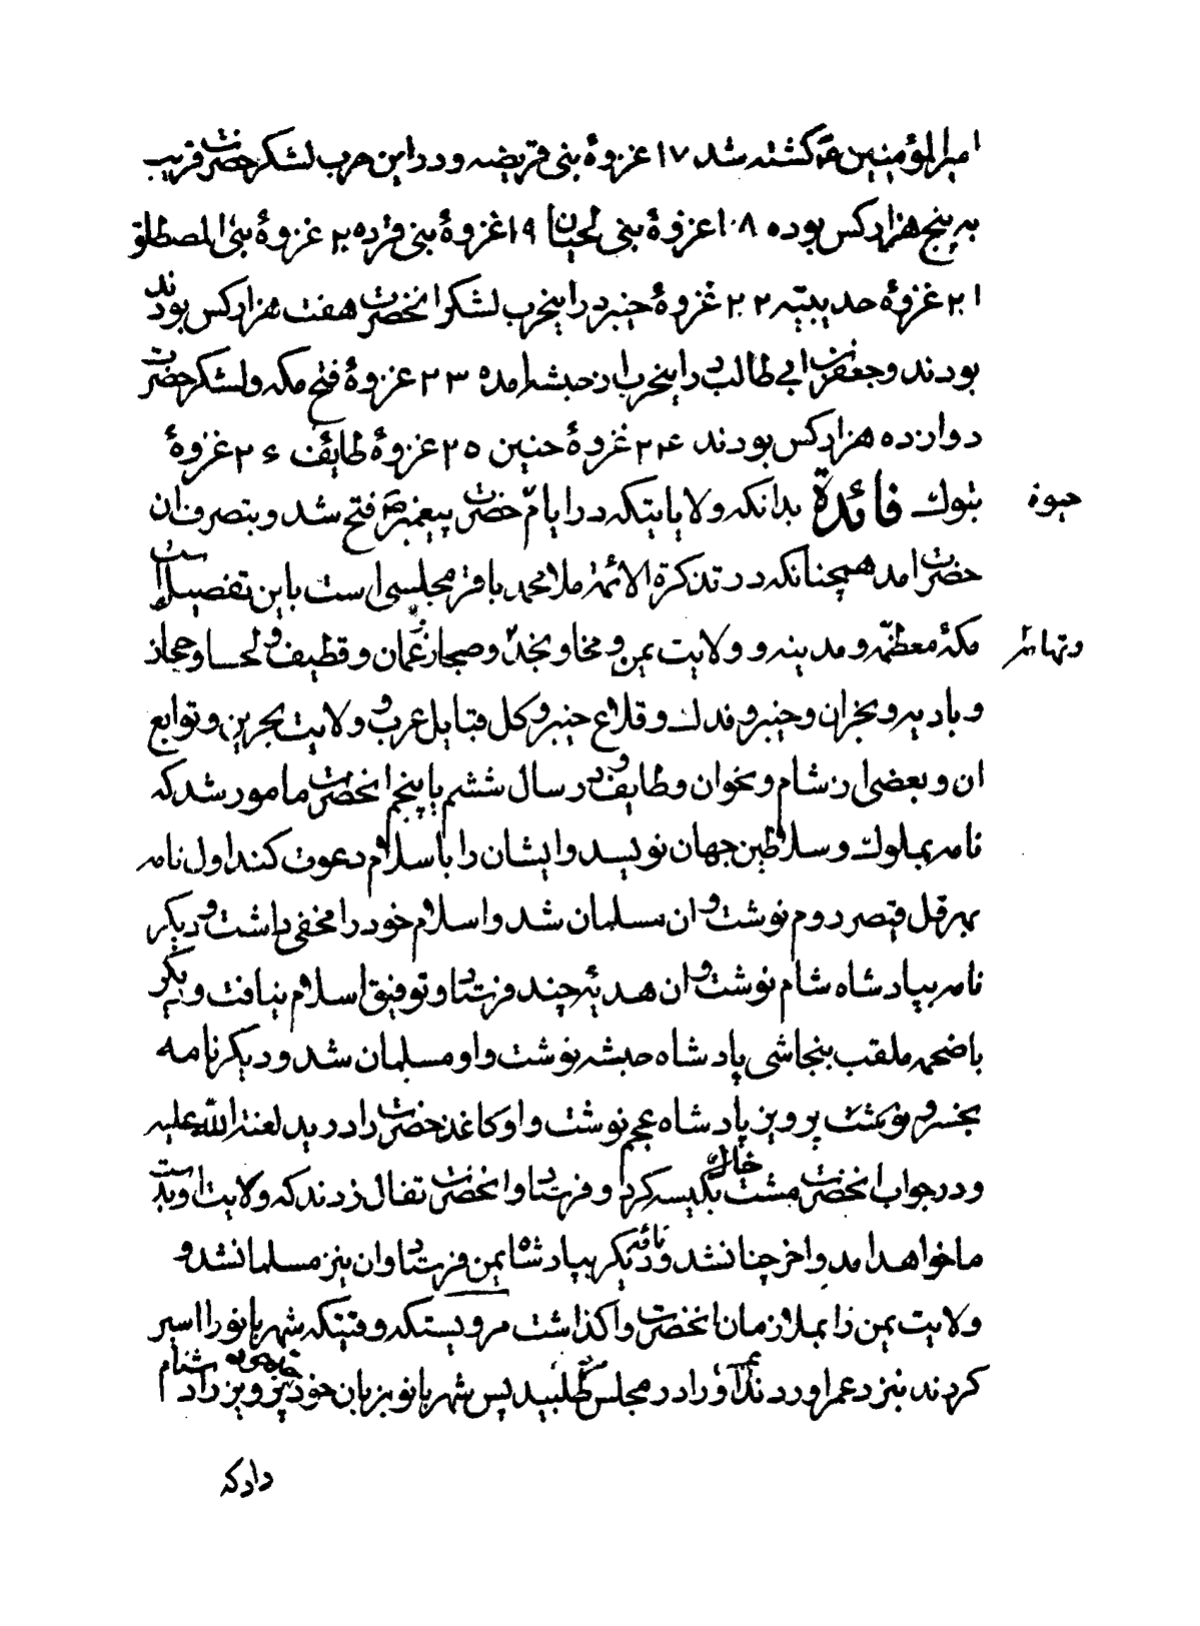 امیرالمؤمنین ع کشته شد ۱۷ غزوهٔ بنی قریضه و در این حرب لشکر حضرت قریب
به پنج هزار کس بوده ۱۰۸ غزوهٔ بنی لحیان ۱۹ غزوهٔ بنی قرده ۲۰ غزوهٔ بنی المصطلق
۲۱ غزوهٔ حدیبیّه ۲۲ غزوهٔ خیبر در اینحرب لشکر انحضرت هفت هزار کس بودند
بودند و جعفر بن ابی طالب در اینحرب از حبشه امده ۲۳ غزوهٔ فتح مکه و لشکر حضرت
دوازده هزار کس بودند ۲۴ غزوهٔ حنین ۲۵ غزوهٔ طایٔف ۲۶ غزوهٔ
تبوک فائدة بدانکه ولایاتیکه در ایام حیوة حضرت پیغمبر ص فتح شد و بتصرف ان
حضرت امد همچنانکه در تذکرة الائمه ملا محمد باقر مجلسی است باین تفصیل است
مکهٔ معظمّه و مدینه و ولایت یمن و مخا و نجد و تهائم و صحار و عمان و قطیف و لحسا و حجاز
و بادیه و نجران و خیبر و فدک و قلاع خیبر و کل قبایل عرب و ولایت بحرین و توابع
ان و بعضی از شام و نخوان و طایف و در سال ششم یا پنجم انحضرت مامور شد که
نامه بملوک و سلاطین جهان نویسد و ایشان را باسلام دعوت کند اول نامه
بهرقل قیصر دوم نوشت و ان مسلمان شد و اسلام خود را مخفی داشت و دیکر
نامه بپادشاه شام نوشت و ان هدیهٔ چند فرستاد و توفیق اسلام نیافت و دیکر
باضحمه ملقب بنجاشی پادشاه حبشه نوشت و او مسلمان شد و دیکر نامه
بخسرو پرویز پادشاه عجم نوشت و او کاغذ حضرت را درید لعنة الله علیه
و در جواب انحضرت مشت خاک بکیسه کرد و فرستاد و انحضرت تفال زدند که ولایت او بدست
ما خواهد امد و اخر چنان شد و نامه دیکر بپادشاه یمن فرستاد و ان نیز مسلمان شد و
ولایت یمن را بملازمان انحضرت واکذاشت مرویستکه وقتیکه شهربانو را اسیر
کردند نبزد عمر اوردند عمر او را در مجلس طلبید پس شهربانو بزبان خود خسرو پرویز را دشنام
داد که